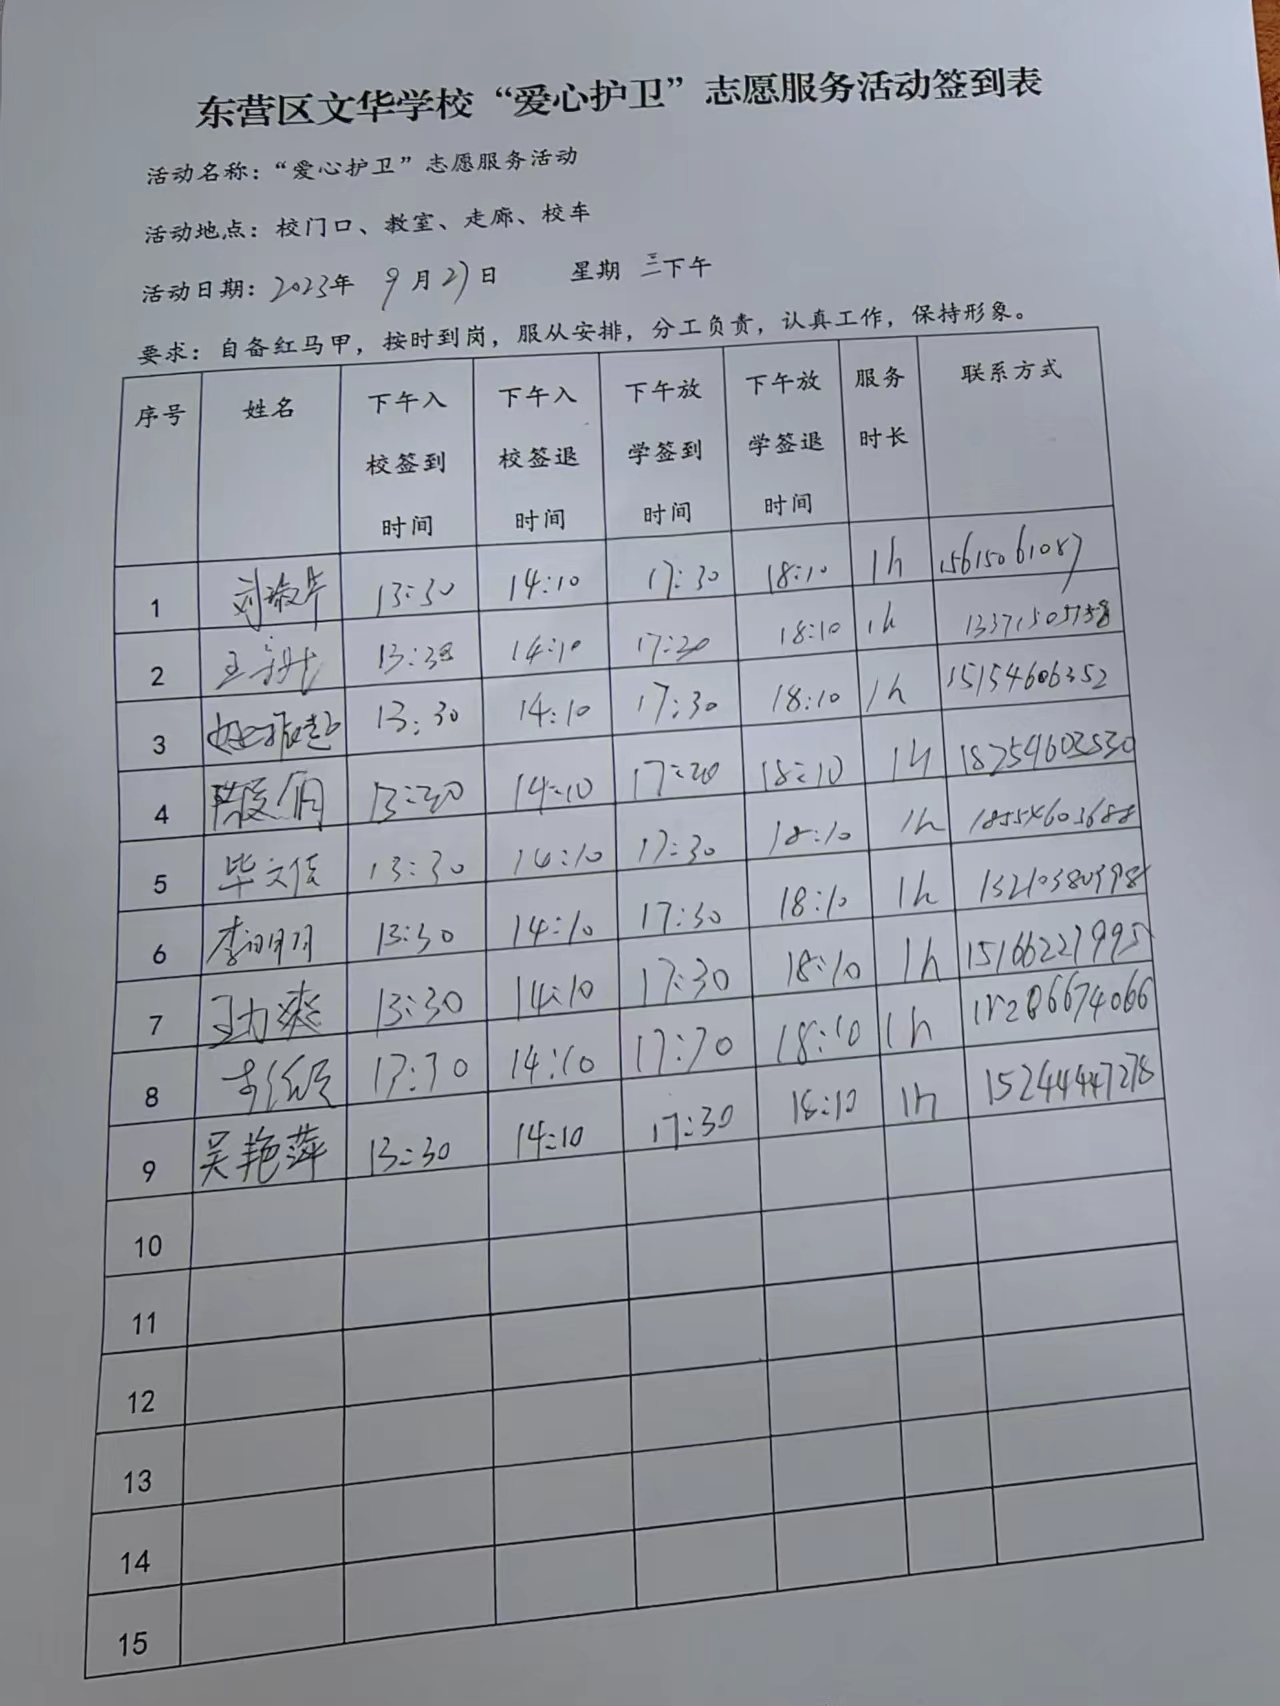 东营区文华学校“爱心护卫”志愿服务活动签到表
活动名称：“爱心护卫”志愿服务活动
活动地点：校门口、教室、走廊、校车
活动日期：2023年 9月27日 星期 三下午
要求：自备红马甲，按时到岗，服从安排，分工负责，认真工作，保持形象。
序号 姓名 下午入校签到时间 下午入校签退时间 下午放学签到时间 下午放学签退时间 服务时长 联系方式
1 13:30 14:10 17:30 18:10 1h 15615061087
2 王 13:30 14:10 17:30 18:10 1h
3 13:30 14:10 17:30 18:10 1h 15154606352
4 14:10 18:10 1h 18254602530
5 毕文佳 13:30 14:10 17:30 18:10 1h
6 李明月 13:30 14:10 17:30 18:10 1h
7 王力爽 13:30 14:10 17:30 18:10 1h 15166227995
8 14:10 18:10 1h
9 吴艳萍 13:30 14:10 17:30 18:10 1h 15244447278
10
11
12
13
14
15